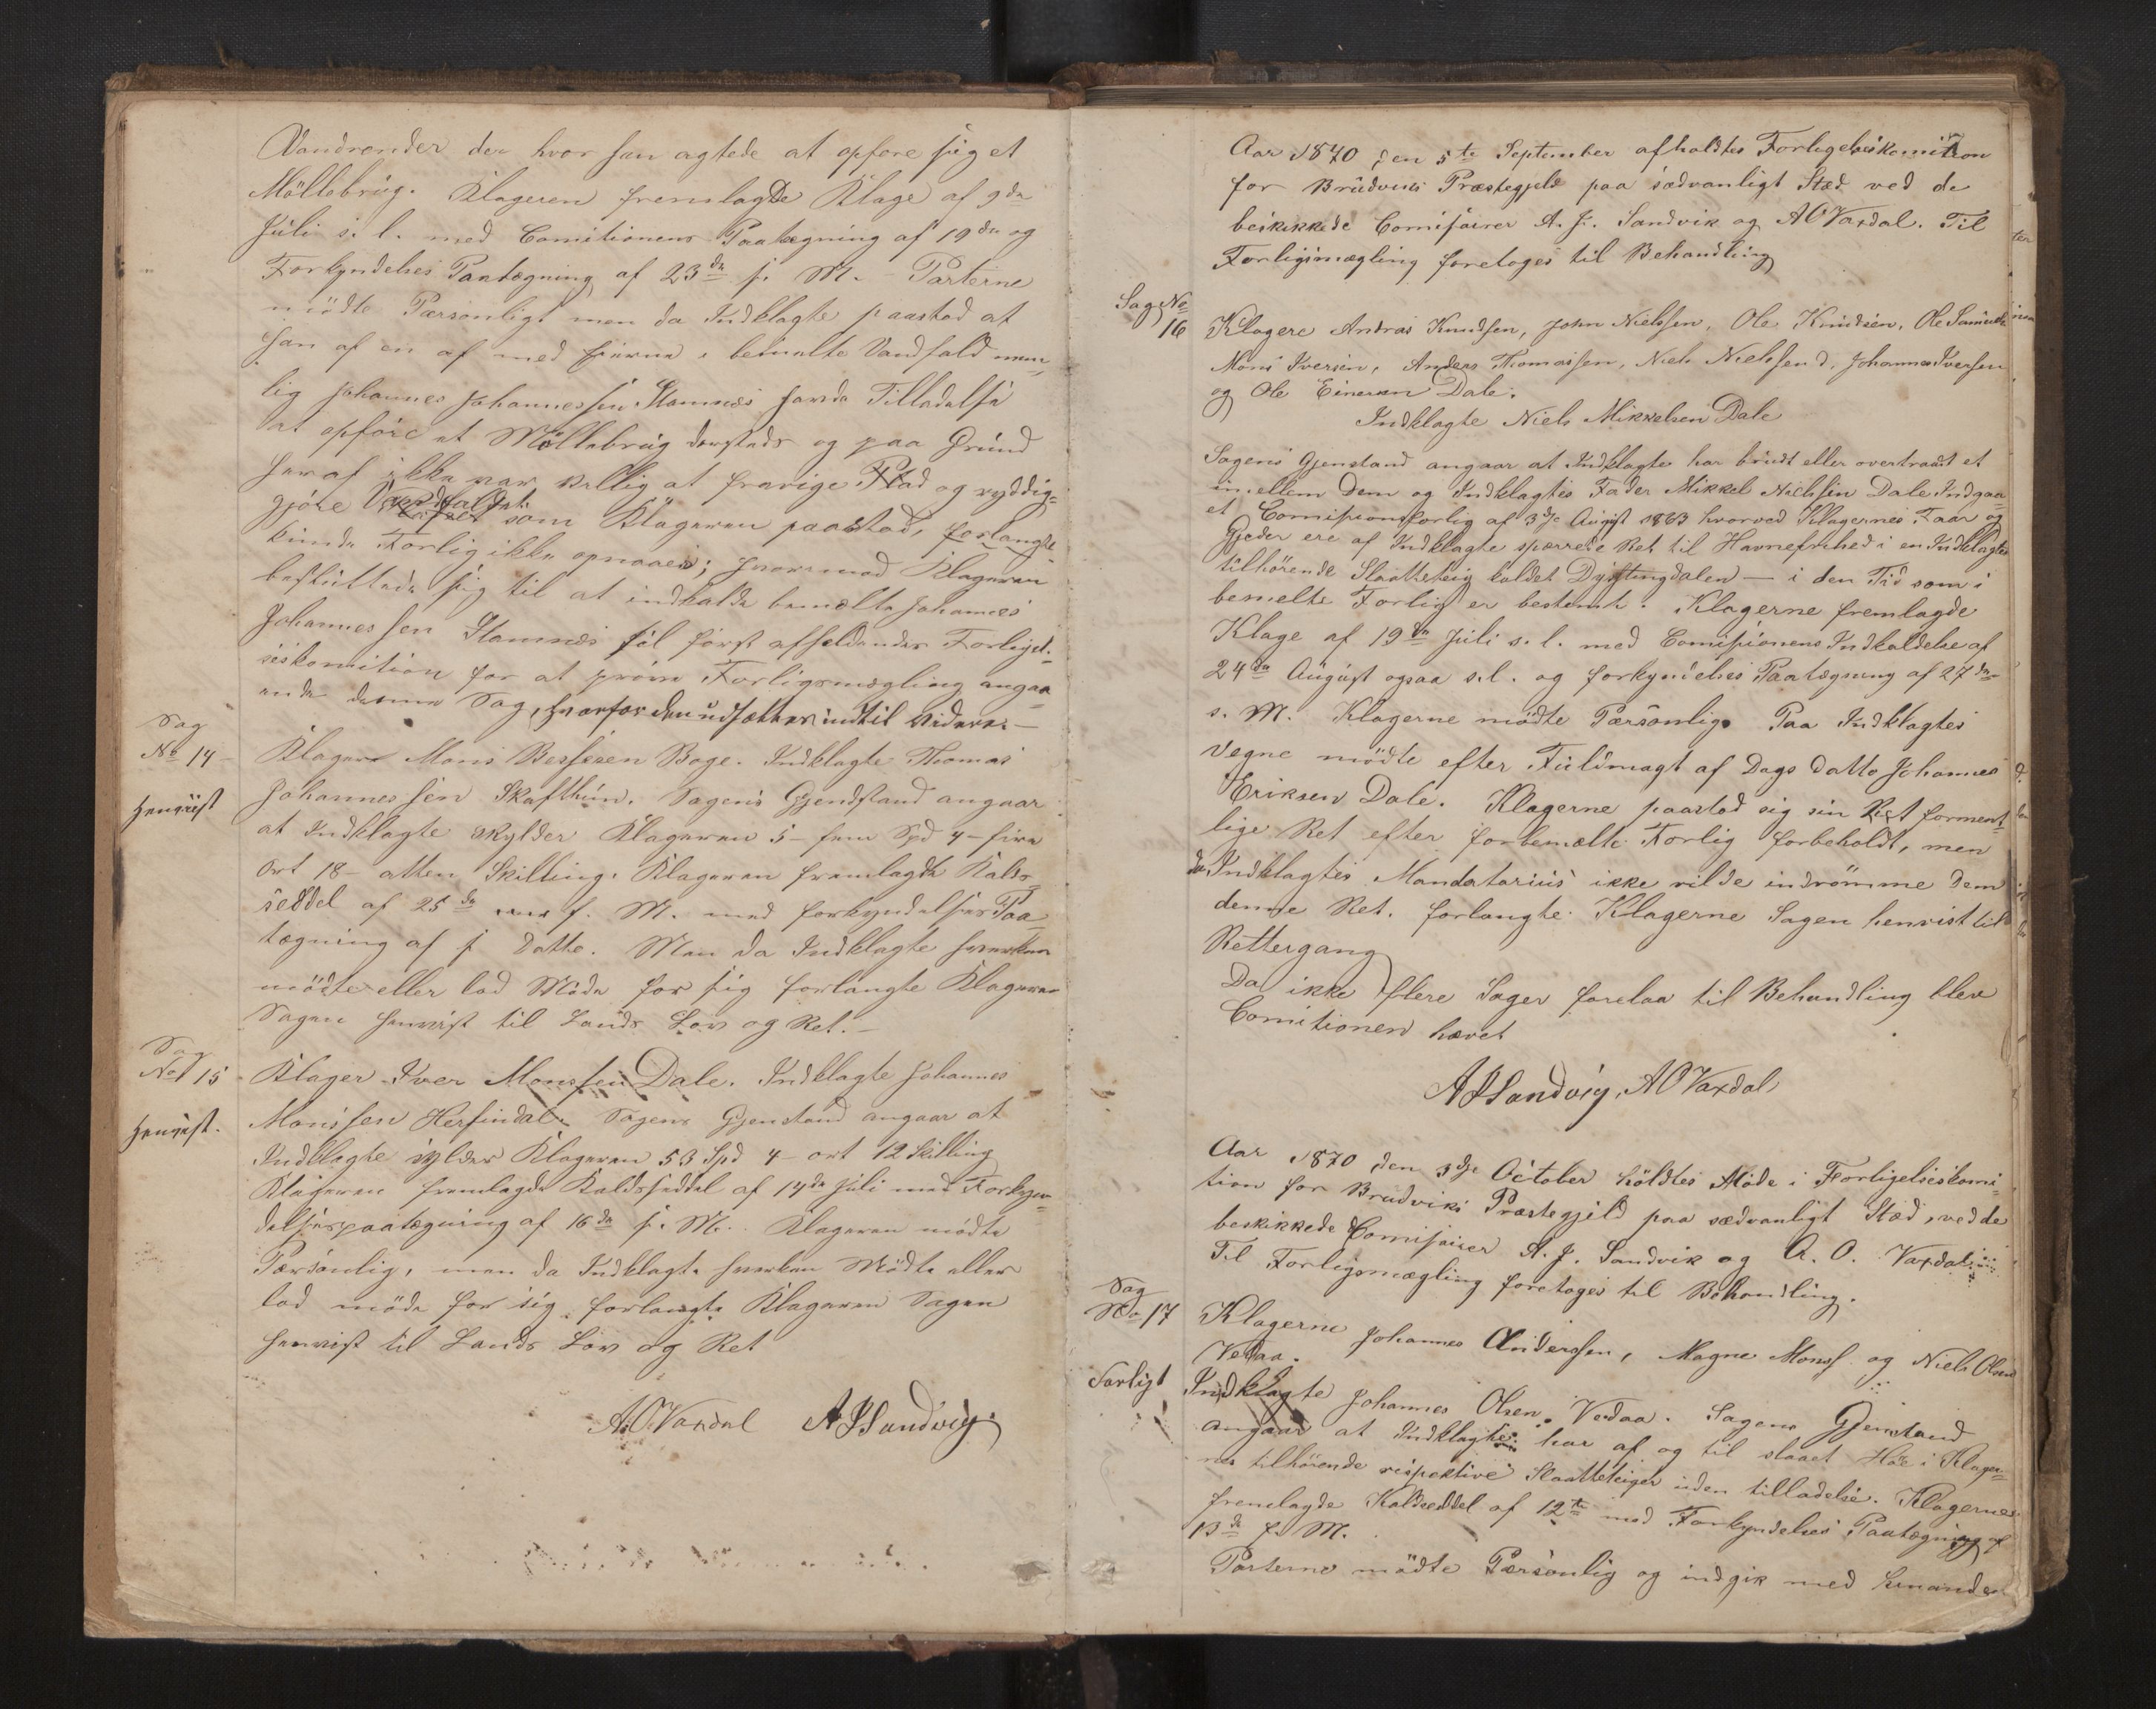 Vandrender der hvor han agtede at opføre sig et
Möllebrüg. Klageren fremlagde Klage af 9de
Juli s. l. med Comitionens Paategning af 19de og
Forkyndelses Paategning af 23de s. M. Parterne
mödte Personligt men da Indklagte paastod at
han af en af med Eierne i bemælte Vandfald nem¬
lig Johannes Johannessen Stamnes havde Tilladelse
at opføre et Möllebrug dersteds og paa Grund
heraf ikke var villig at fravige Stad og ryddig¬
gjöre Vandfaldet som Klageren paastod, forlangte
kunde Forlig ikke opnaaes; hvormod Klageren
besluttede sig til at indkalde bemælte Johannes
Johannessen Stamnes til först afholdendes Forligel¬
seskomition for at pröve Forligsmægling angaa¬
ende denne Sag, hvorfor den udsættes indtil Videre.—
Sag
No 14
Klager Mons Bessesen Boge. Indklagte Thomas
Henviist
Johannessen Skafthun. Sagens Gjendstand angaar
at Indklagte skylder Klageren 5- fem Spd 4- fire
Ort 18- atten Skilling. Klageren fremlagde Kalds
seddel af 25de f. M. med forkyndelses Paa¬
tægning af s Datto. Men da Indklagte hverken
mödte eller lod Möde for sig forlangte Klageren
Sagen henvist til Lands Lov og Ret.—
Sag
No 15
Klager Iver Monssen Dale. Indklagte Johannes
Henvist.
Monssen Herfindal. Sagens Gjenstand angaar at
Indklagte sylder Klageren 53 Spd 4- ort 12 Skilling
Klageren fremlagde Kaldsseddel af 14de Juli med Forkyn¬
delsespaategning af 16de s. M. Klageren mödte
Personlig, men da Indklagte hverken Mödte eller
lod möde for sig forlangte Klageren Sagen
henvist til Lands Lov og Ret
A.O.Vaxdal AJSandvig.
Aar 1870 den 5te September afholdtes Forligelseskomition
for Brüdviks Præstegjeld paa sædvanligt Stæd ved de
beskikkede Comisairer A. J. Sandvik og A O Vaxdal. Til
Forligsmægling foretoges til Behandling
Sag No
16
Klagere Andras Knudsen, John Nielssen, Ole Knudsen, Ole Samuels
Mons Iversen, Anders Thomassen, Niels Nielssen d, Johannes Iversen
og Ole Einersen Dale.
Indklagte Niels Mikkelsen Dale
Sagens Gjenstand angaar at Indklagte har brudt eller overtraadt et
imellem Dem og Indklagtes Fader Mikkel Nielsen Dale Indgaa¬
et Comisionsforlig af 3dje August 1863 hvorved Klagernes Faar og
Gjeder ere af Indklagte sperrede Ret til Havnefrihed i en Indklagte
tilhörende Slaatteteig kaldet Dystingdalen — i den Tid som i
bemelte Forlig er bestemt. Klagerne fremlagde
Klage af 19de Juli s. l. med Comisionens Indkaldelse af
24de August ogsaa s.l. og forkyndelses Paategning af 27de
s. M. Klagerne mödte Personlig. Paa Indklagtes
Vegne mödte efter Fuldmagt af Dags datto Johannes
Eriksen Dale. Klagerne paastod sig sin Ret forment¬
lige Ret efter forbemælte Forlig forbeholdt, men
da Indklagtes Mandatarius ikke vilde indrömme Dem
denne Ret, forlangte Klagerne Sagen henvist til
Rettergang
Da ikke flere Sager forelaa til Behandling blev
Comitionen hævet
AJSandvig, AO Vaxdal
Aar 1870 den 3dje October höldtes Möde i Forligelseskomi¬
tion for Brudviks Præstegjeld paa sædvanligt Stæd, ved de
beskikkede Comisairer A. J. Sandvik og A. O. Vaxdal
Til Forligsmægling foretoges til Behandling.
Sag
No 17
Klagerne Johannes Anderssen, Magne Monss. og Niels Olsen
Vedaa.
Forligt
Indklagte Johannes Olsen Vedaa. Sagens Gjenstand
angaar at Indklagte har af og til slaaet Höe i Klager¬
nes tilhörende respektive Slaatteteiger uden tilladelse. Klagerne
fremlagde Kaldseddel af 12te med Forkyndelses Paategning af
13de f. M.
Parterne mödte Personlig og indgik med hinanden